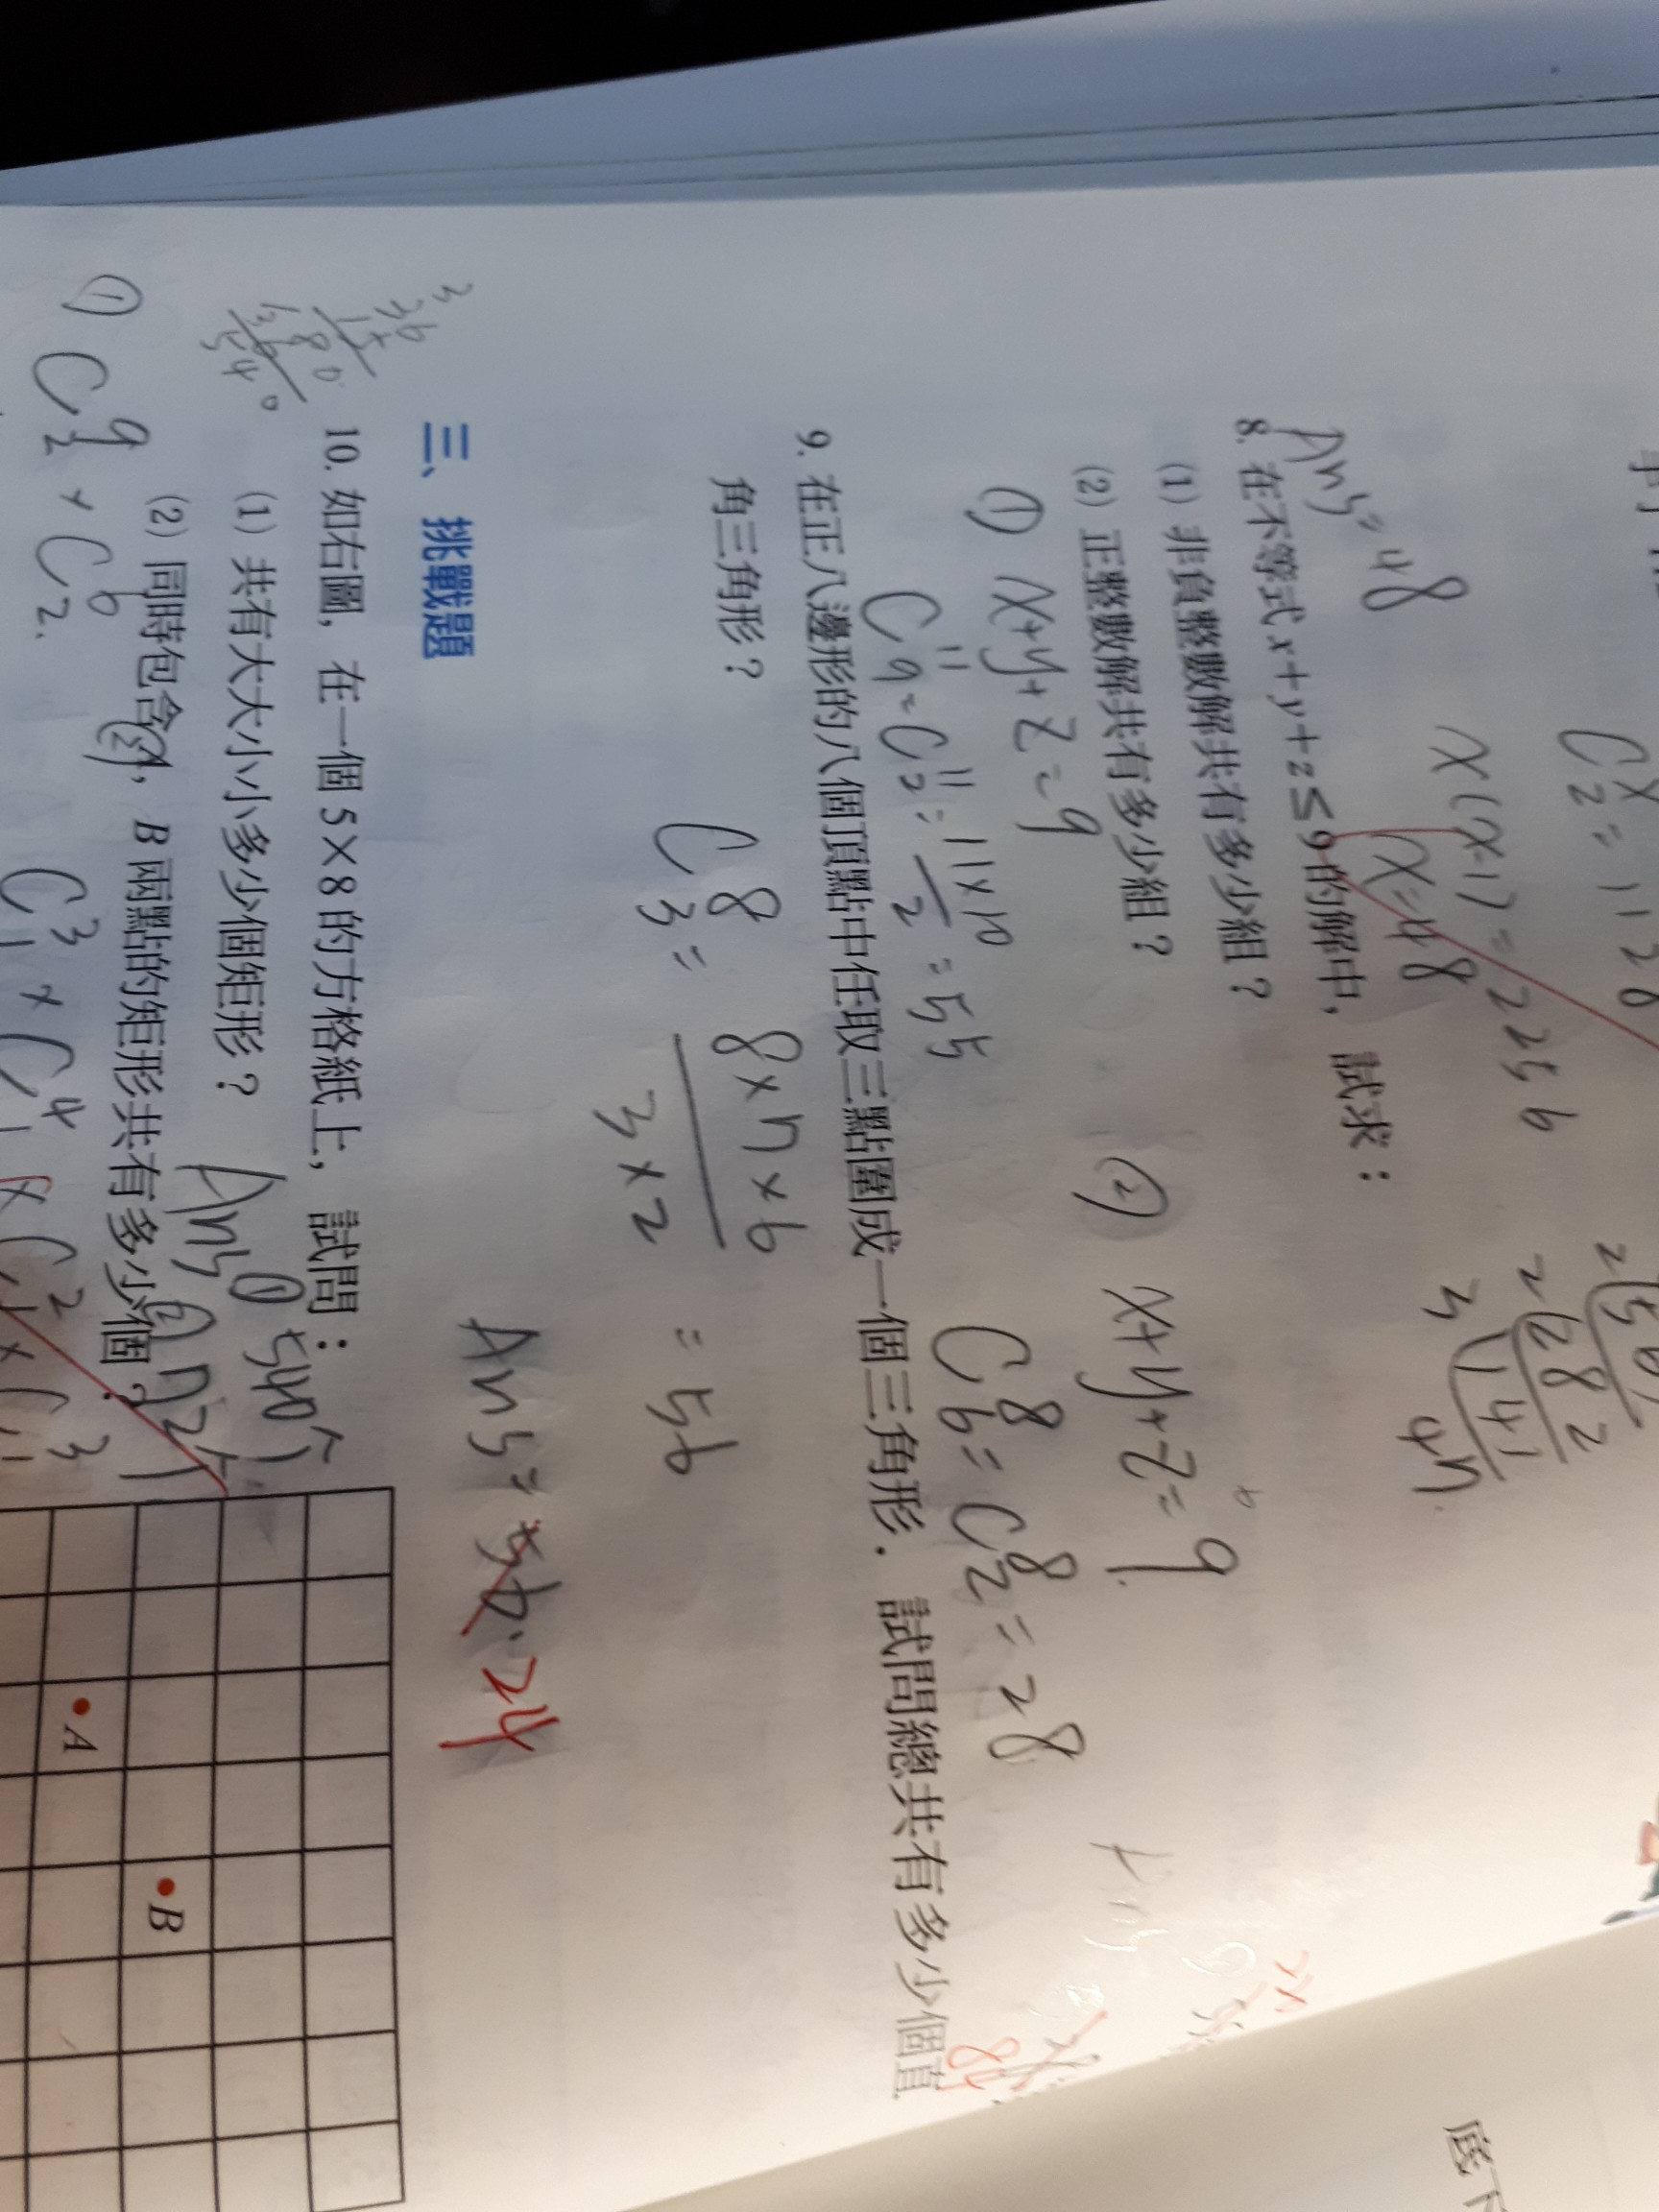 C x 2 = 1128
x(x-1) = 2256
x=48
Ans=48
8. 在不等式 x+y+z≤9的解中，試求：
(1) 非負整數解共有多少組？
(2) 正整數解共有多少組？
① x+y+z=9
C 11 9 = C 11 2 = 11×10 / 2 = 55
② x+y+z=9
C 8 6 = C 8 2 = 28
84
9. 在正八邊形的八個頂點中任取三點圍成一個三角形．試問總共有多少個直
角三角形？
C 8 3 = 8×7×6 / 3×2 = 56
Ans = 56. 24
三、挑戰題
10. 如右圖，在一個 5×8 的方格紙上，試問：
(1) 共有大大小小多少個矩形？
(2) 同時包含 A，B 兩點的矩形共有多少個？
Ans ① 540个
② 72个
① C 9 2 × C 6 2
(2)
C 3 1 × C 4 1 × C 2 1 × C 3 1
A
B
底下